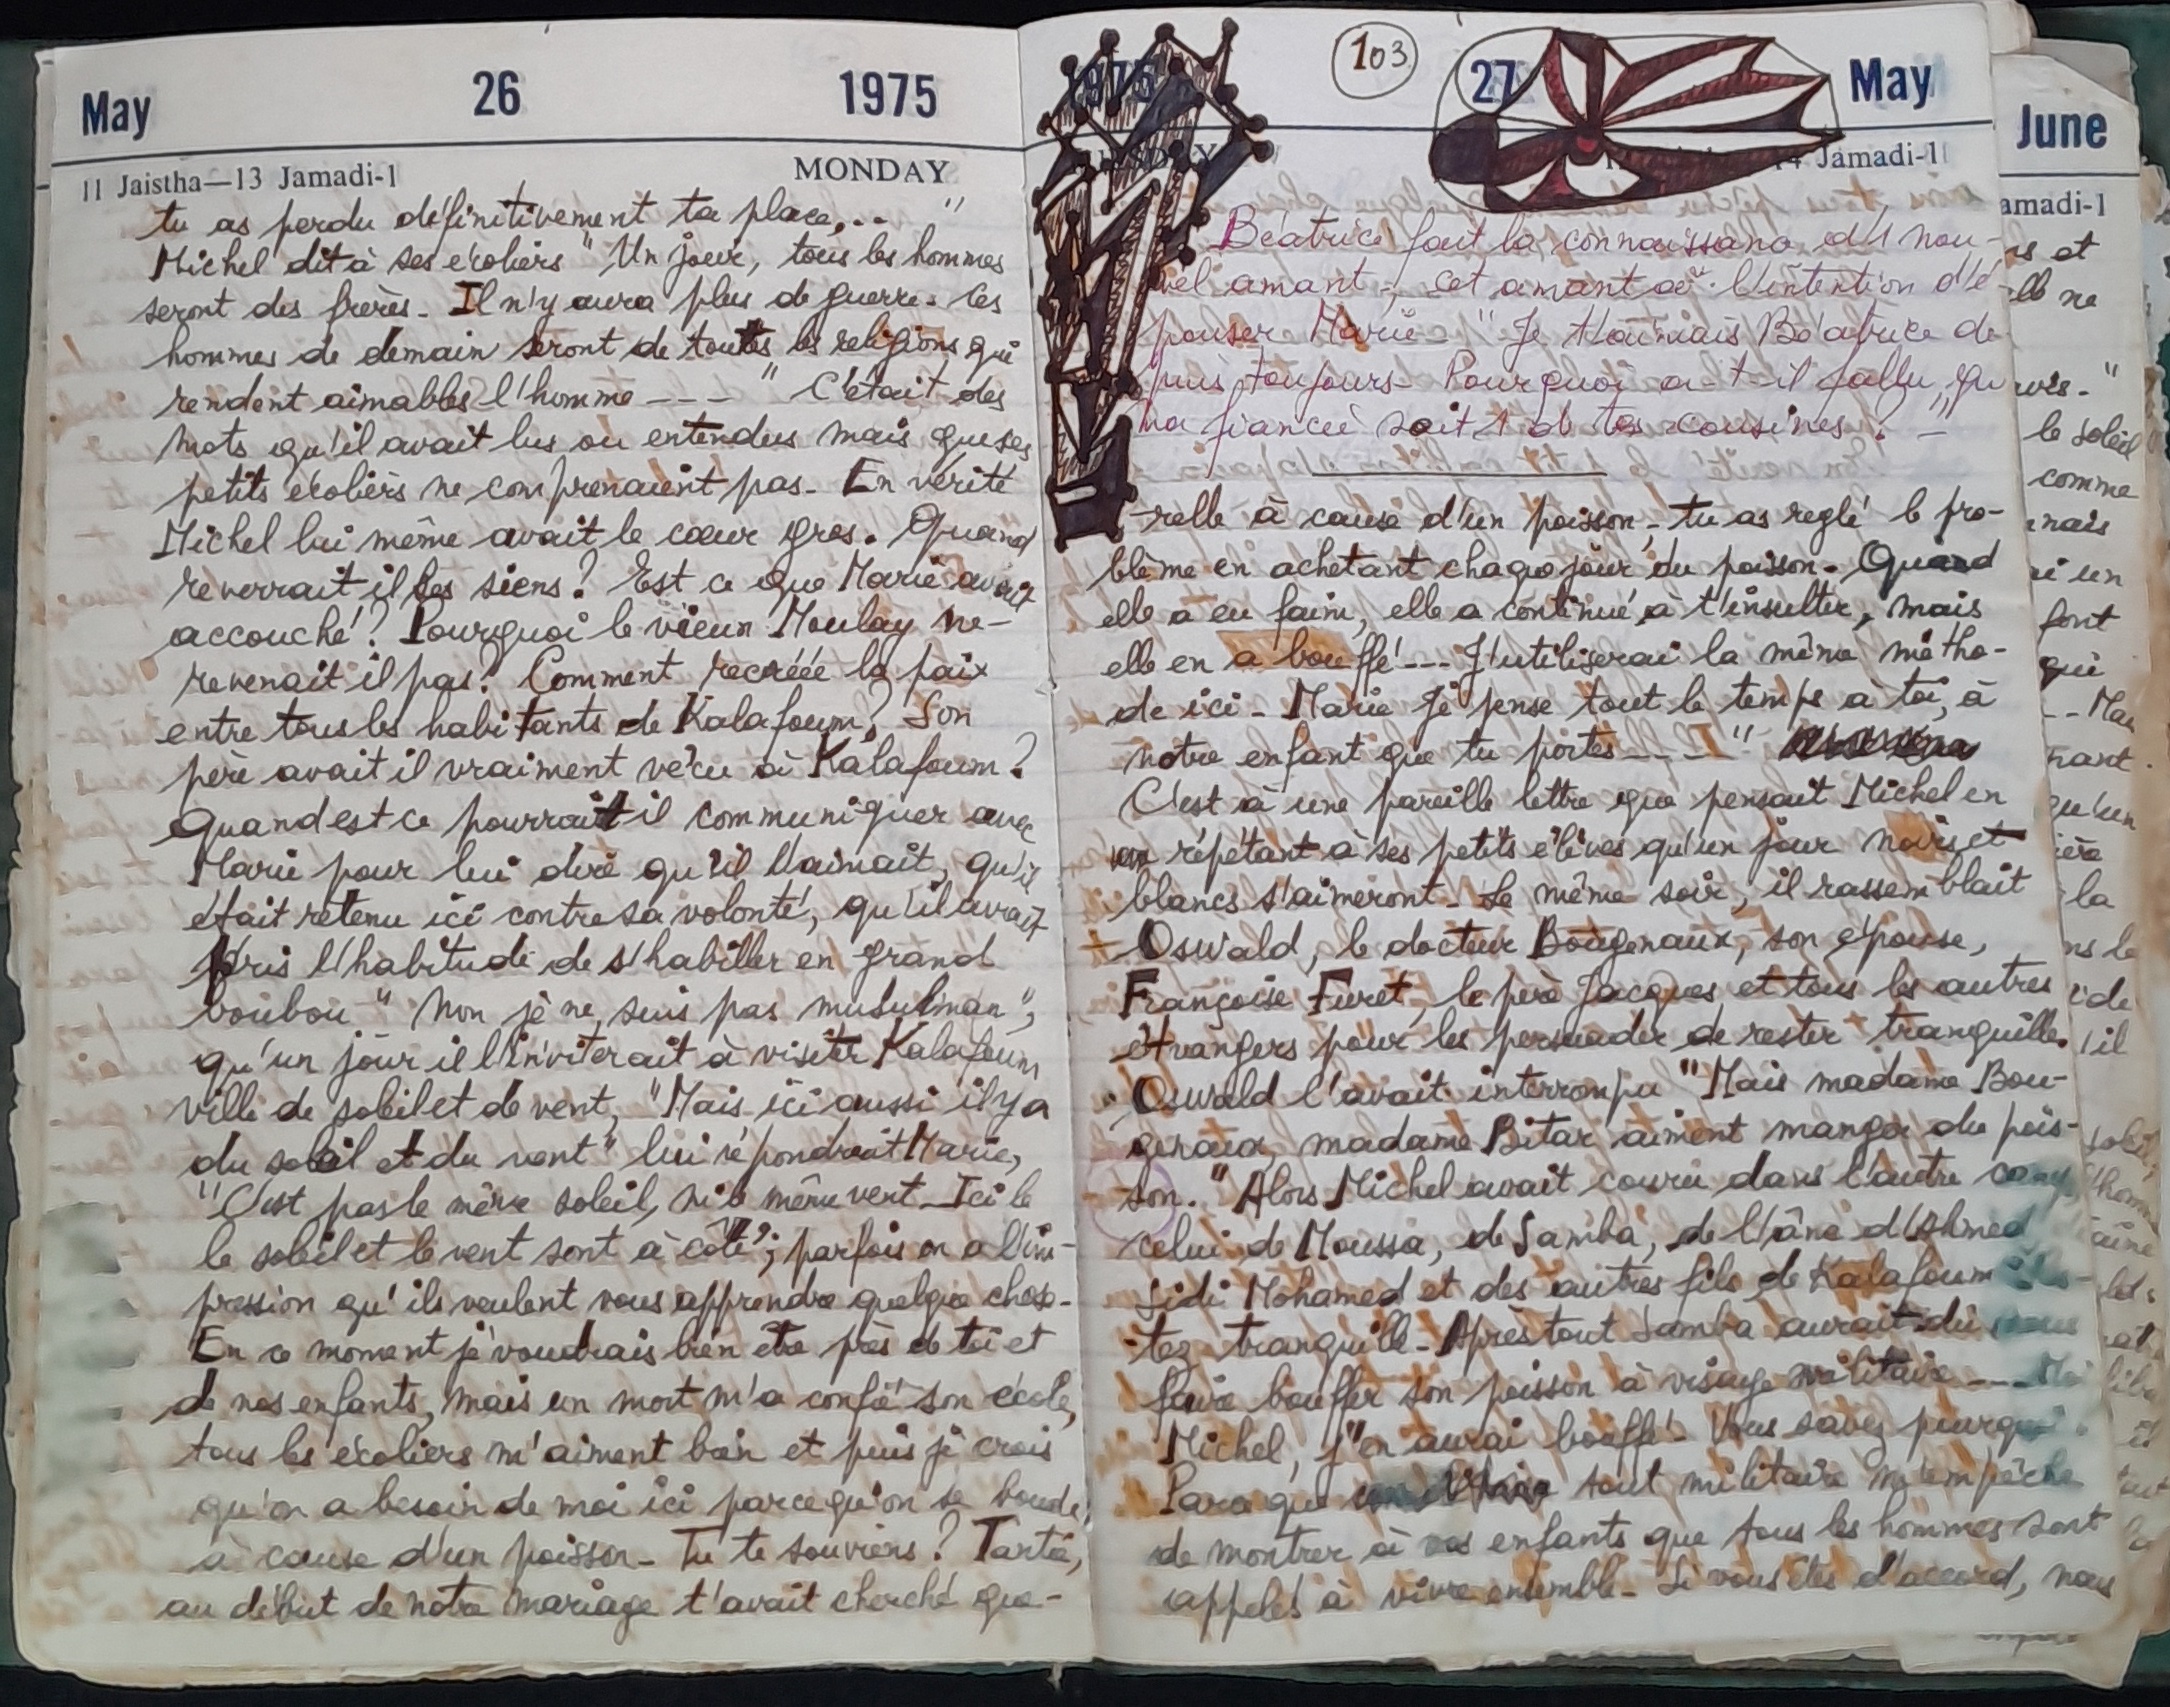 May 26 1975
11 Jaistha—13 Jamadi-1 MONDAY
tu as perdu définitivement ta place,.. "
Michel dit à ses écoliers " Un jour, tous les hommes
seront des frères - Il n'y aura plus de guerre - Ces
hommes de demain seront de toutes les religions qui
rendent aimables l'homme --- " C'était des
mots qu'il avait lus ou entendus mais que ses
petits écoliers ne comprenaient pas - En vérité
Michel lui même avait le cœur gros. Quand
reverrait il les siens ? Est ce que Marie avait
accouché ? Pourquoi le vieux Moulay ne-
revenait il pas ? Comment recréée la paix
entre tous les habitants de Kalafoum ? Son
père avait il vraiment vécu à Kalafoum ?
Quand est ce pourrait il communiquer avec
Marie pour lui dire qu'il l'aimait, qu'il
était retenu ici contre sa volonté, qu'il avait
pris l'habitude de s'habiller en grand
boubou " Non je ne suis pas musulman ",
qu'un jour il l'inviterait à visiter Kalafoum
ville de soleil et de vent, "Mais ici aussi il y a
du soleil et du vent" lui répondrait Marie,
"C'est pas le même soleil, ni le même vent - Ici le
le soleil et le vent sont à côté ; parfois on a l'im-
pression qu'ils veulent vous apprendre quelque chose -
En ce moment je voudrais bien être près de toi et
de nos enfants, mais un mort m'a confié son école,
tous les écoliers m'aiment bien et puis je crois
qu'on a besoin de moi ici parce qu'on se boude
à cause d'un poisson - Tu te souviens ? Tanta,
au début de notre mariage t'avait cherché que-
1975 103 27 May
14 Jamadi-1
Béatrice fait la connaissance d'1 nou-
vel amant -, cet amant a l'intention d'é-
pouser Marie - " Je t'aimais Béatrice de
puis toujours - Pourquoi a-t-il fallu que
ma fiancée soit 1 de tes cousines ? - "
-relle à cause d'un poisson, - tu as reglé le pro-
blème en achetant chaque jour du poisson. Quand
elle a eu faim, elle a continué à t'insulter, mais
elle en a bouffé --- J'utiliserai la même métho-
de ici - Marie Je pense tout le temps à toi, à
notre enfant que tu portes ---- "
C'est à une pareille lettre que pensait Michel en
répétant à ses petits élèves qu'un jour noirs et
blancs s'aimeront - Le même soir, il rassemblait
Oswald, le docteur Bougenaux, son épouse,
Françoise Furet, le père Jacques et tous les autres
étrangers pour les persuader de rester tranquille.
Oswald l'avait interrompu "Mais madame Bou-
genaux, madame Bitar aiment manger du pois-
son. " Alors Michel avait couru dans l'autre camp
celui de Moussa, de Samba, de l'âne d'Ahmed
Sidi Mohamed et des autres fils de Kalafoum
tez tranquille - Après tout Samba aurait dû nous
faire bouffer son poisson à visage militaire --- Moi
Michel, j'en aurai bouffé - Vous savez pourquoi
Parce que tout militaire m'empêche
de montrer à vos enfants que tous les hommes sont
appelés à vivre ensemble - Si vous êtes d'accord, nous
June
amadi-1